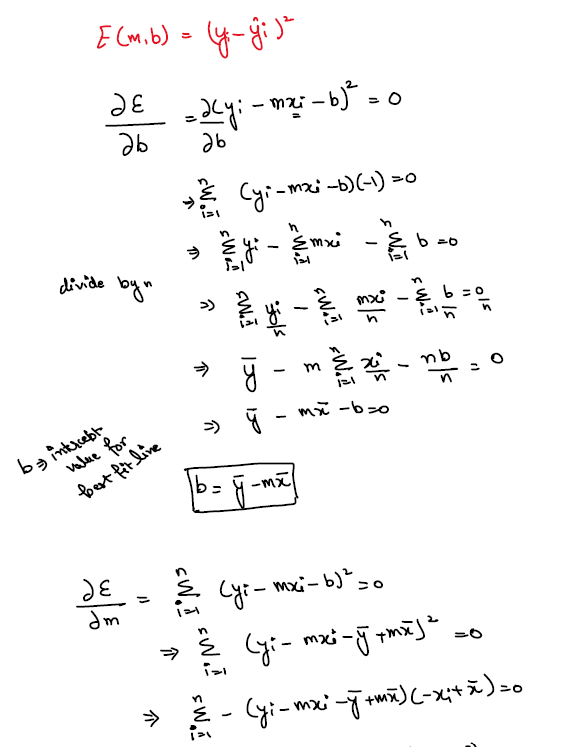 E(m,b) = (yi - ŷi)²
∂E/∂b = ∂(yi - mxi - b)²/∂b = 0
⇒ Σ_{i=1}^{n} (yi - mxi - b)(-1) = 0
⇒ Σ_{i=1}^{n} yi - Σ_{i=1}^{n} mxi - Σ_{i=1}^{n} b = 0
divide by n
⇒ Σ_{i=1}^{n} yi/n - Σ_{i=1}^{n} mxi/n - Σ_{i=1}^{n} b/n = 0/n
⇒ ȳ - m Σ_{i=1}^{n} xi/n - nb/n = 0
⇒ ȳ - mx̄ - b = 0
b ⇒ intercept
value for
best fit line
b = ȳ - mx̄
∂E/∂m = Σ_{i=1}^{n} (yi - mxi - b)² = 0
⇒ Σ_{i=1}^{n} (yi - mxi - ȳ + mx̄)² = 0
⇒ Σ_{i=1}^{n} - (yi - mxi - ȳ + mx̄)(-xi + x̄) = 0